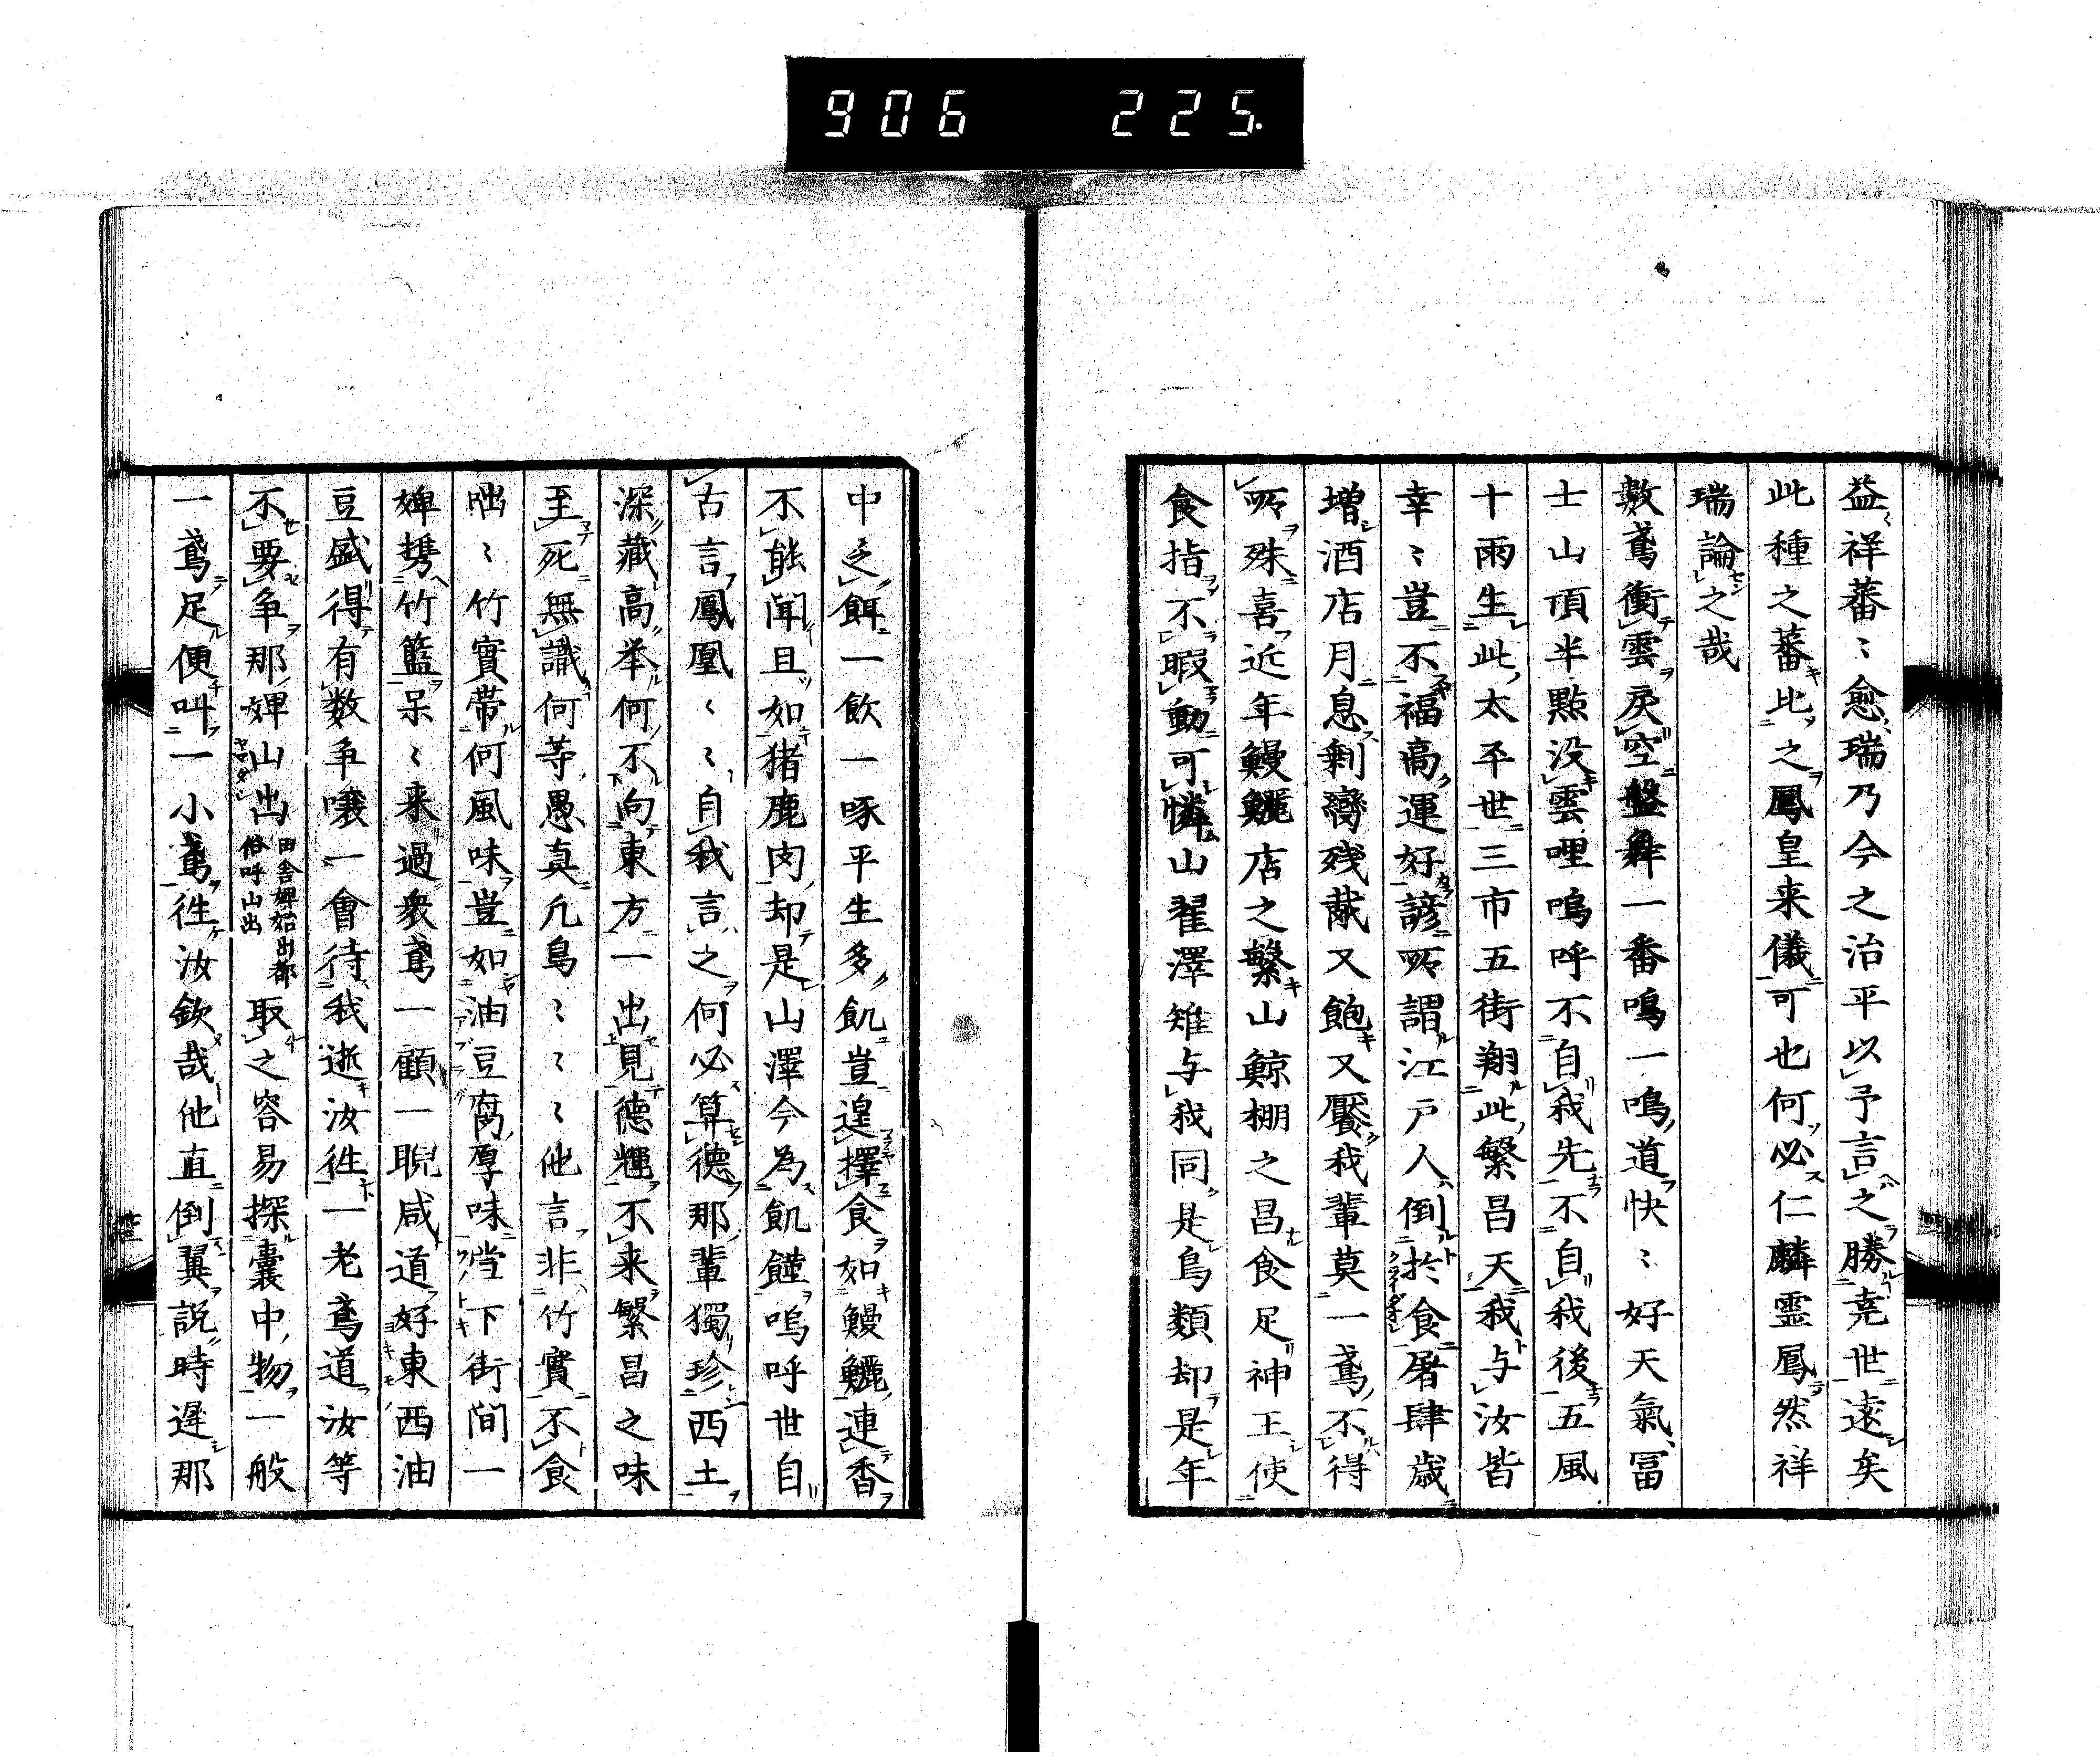 906 225.
益祥蕃〻愈瑞乃今之治平以予言之勝堯世遠矣
此種之蕃比之鳳皇来儀可也何必仁麟霊鳳然祥
瑞論之哉
數鳶衝雲戻空盤舞一番鳴一鳴道快〻好天氣冨
士山頂半點没雲哩嗚呼不自我先不自我後五風
十雨生此太平世三市五街翔此繁昌天我与汝皆
幸〻豈不福高運好諺所謂江戸人倒於食屠肆歳
増酒店月息剰臠残胾又飽又饜我輩莫一鳶不得
所殊喜近年鰻鱺店之繁山鯨棚之昌食足神王使
食指不暇動可憐山翟澤雉与我同是鳥類却是年
中乏餌一飲一啄平生多飢豈遑擇食如鰻鱺連香
不能聞且如猪鹿肉却是山澤今為飢饉嗚呼世自
古言鳳凰〻〻自我言之何必算徳那輩獨珍西土
深藏高举何不向東方一出見徳輝不来繁昌之味
至死無識何等愚真凡鳥〻〻〻他言非竹實不食
咄〻竹實帯何風味豈如油豆腐厚味堂下街間一
婢携竹籃呆〻来過衆鳶一顧一睨咸道好東西油
豆盛得有数争嚷一會待我逝汝徃一老鳶道汝等
不要争那婢山出田舎婢始出都俗呼山出取之容易探嚢中物一般
一鳶足便叫一小鳶徃汝欽哉他直倒翼説時遅那